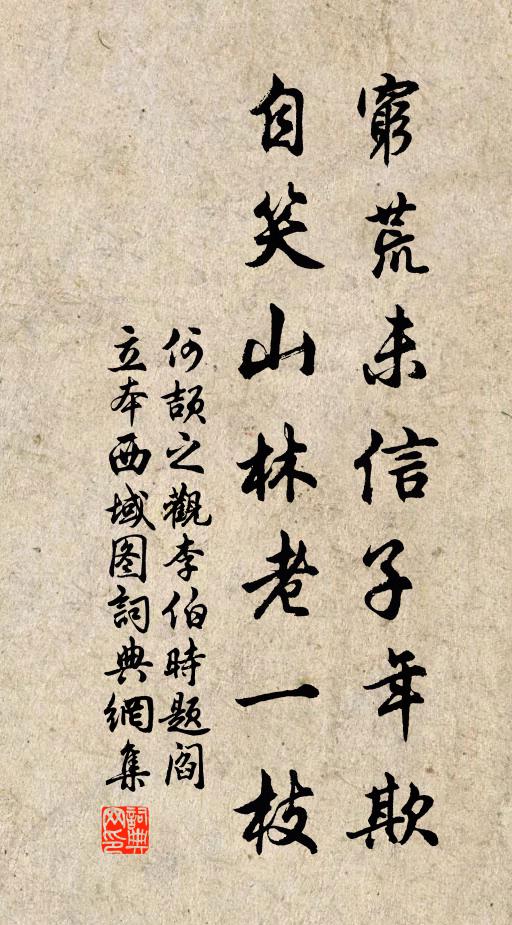 窮荒未信子年欺
自笑山林老一枝
何頡之觀李伯時題閻
立本西域图詞典網集
詞典网印